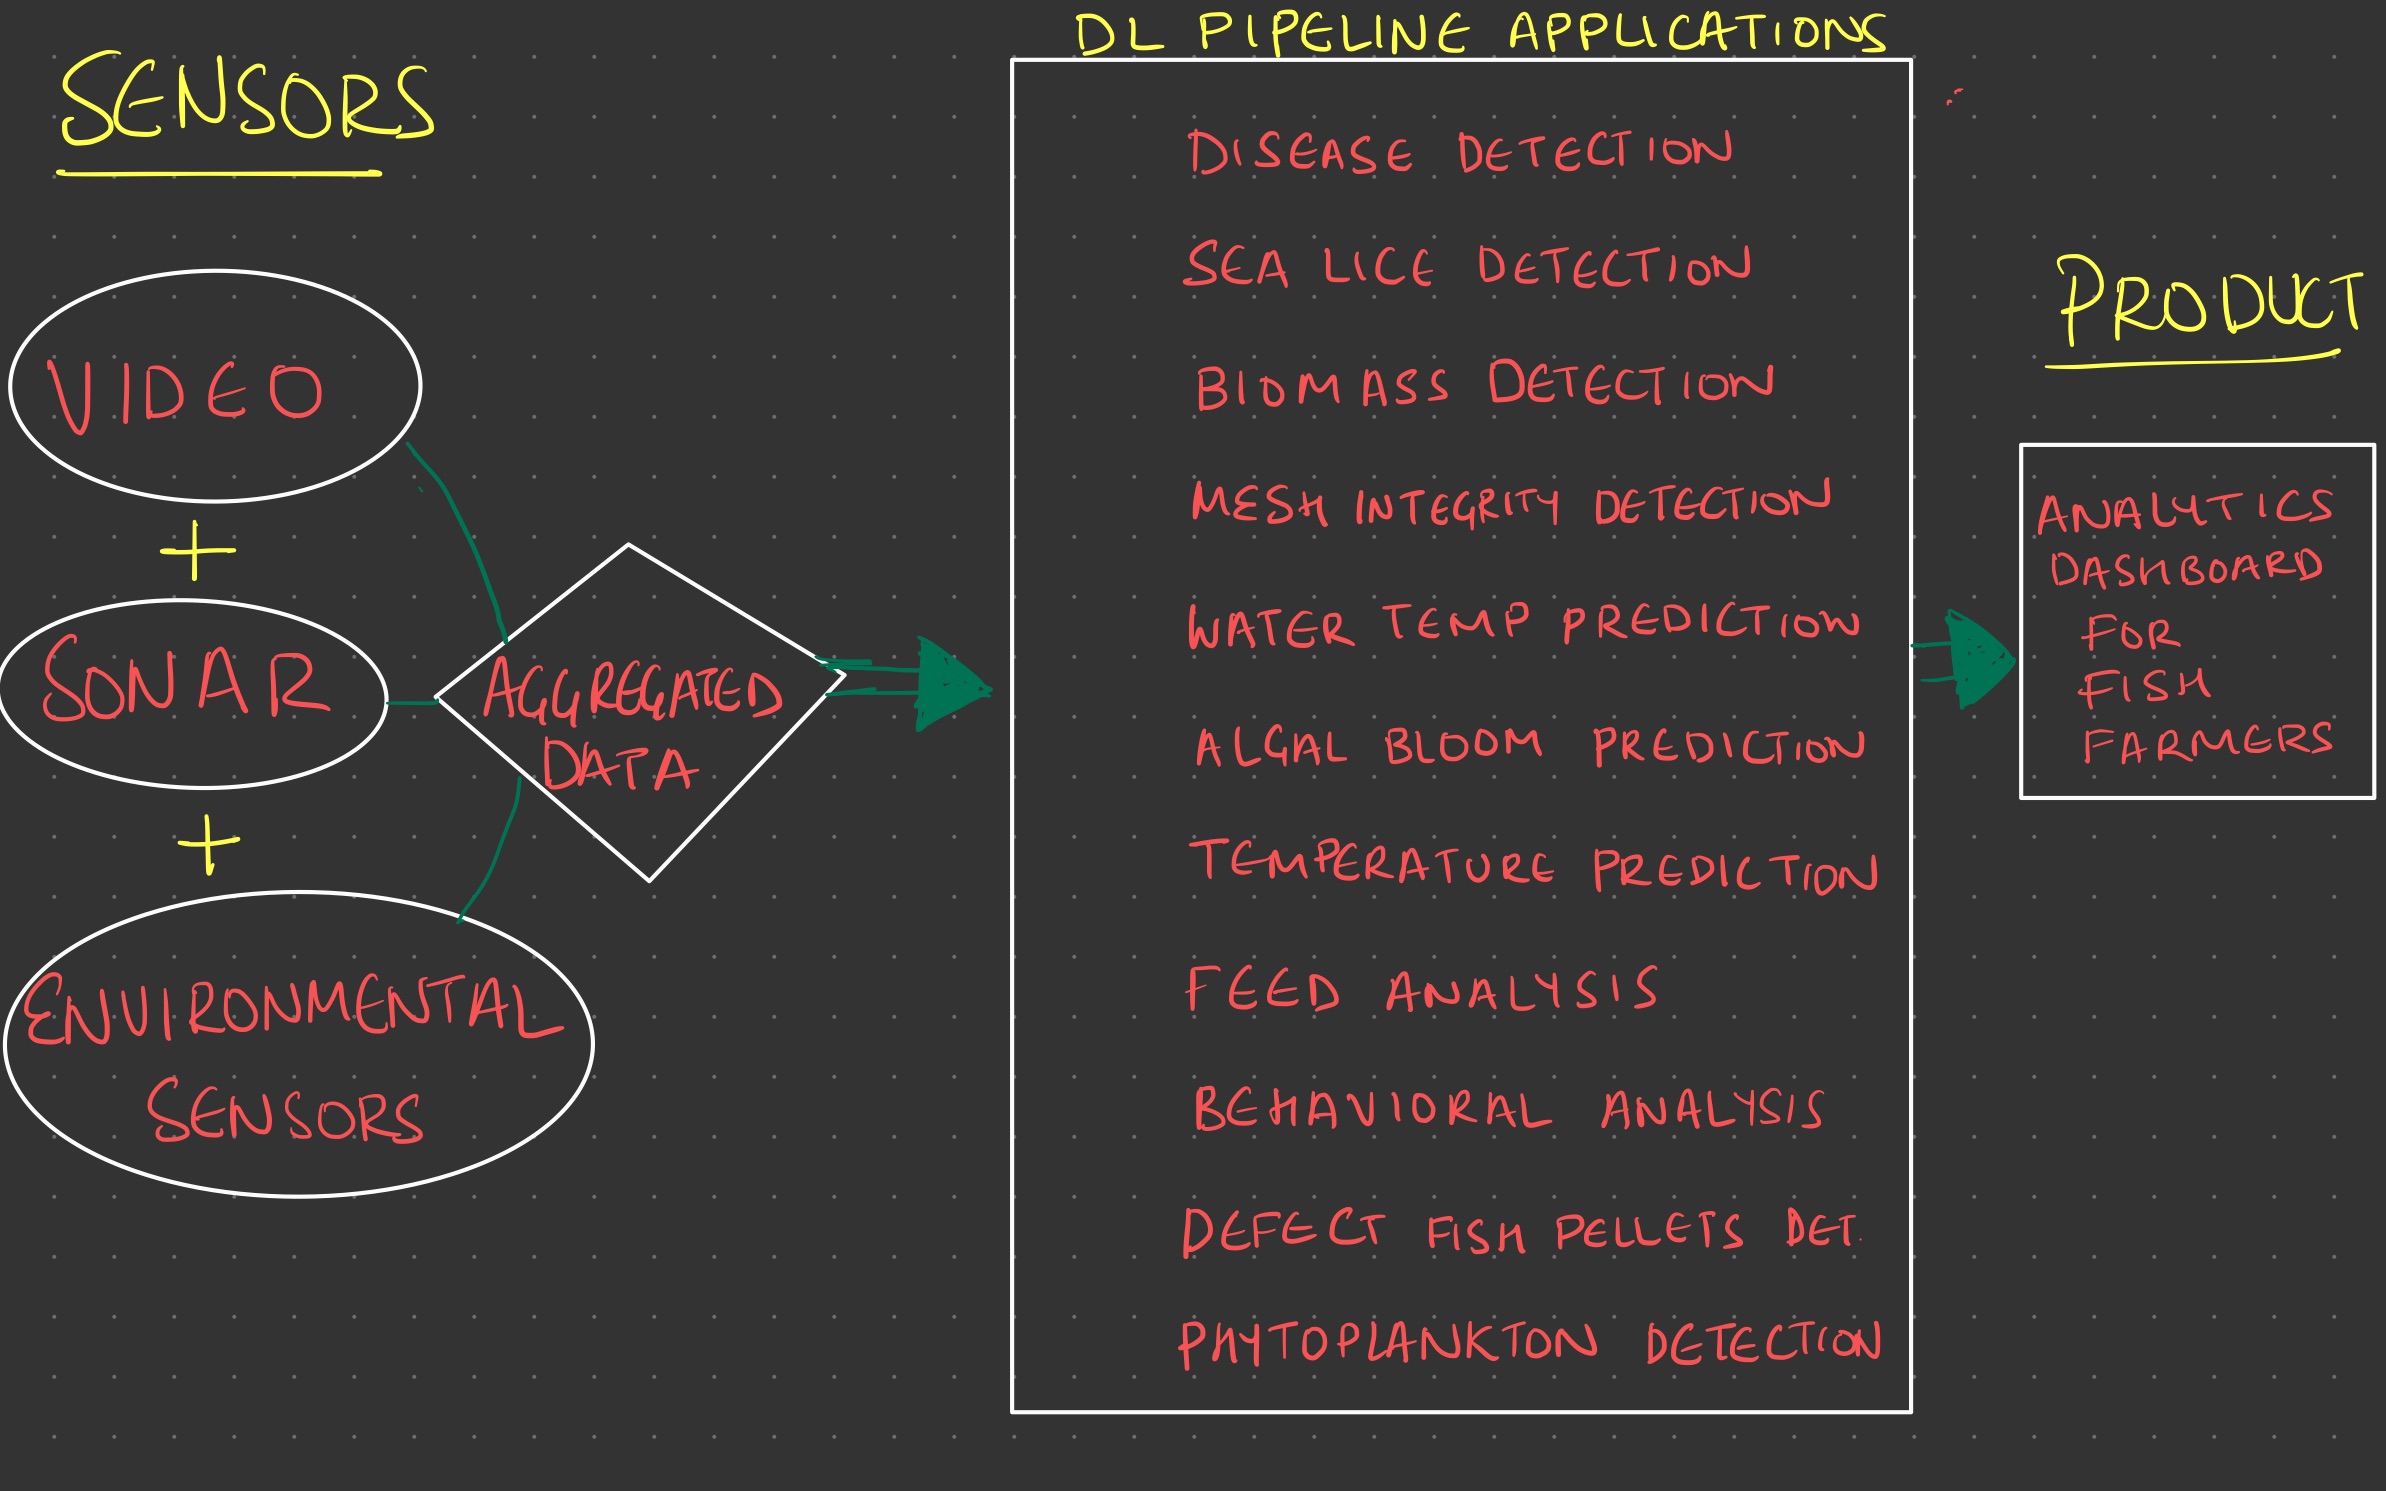 SENSORS
VIDEO
+
SONAR
+
ENVIRONMENTAL
SENSORS
AGGREGATED
DATA
DL PIPELINE APPLICATIONS
DISEASE DETECTION
SEA LICE DETECTION
BIOMASS DETECTION
MESH INTEGRITY DETECTION
WATER TEMP PREDICTION
ALGAL BLOOM PREDICTION
TEMPERATURE PREDICTION
FEED ANALYSIS
BEHAVIORAL ANALYSIS
DEFECT FISH PELLETS DET.
PHYTOPLANKTON DETECTION
PRODUCT
ANALYTICS
DASHBOARD
FOR
FISH
FARMERS